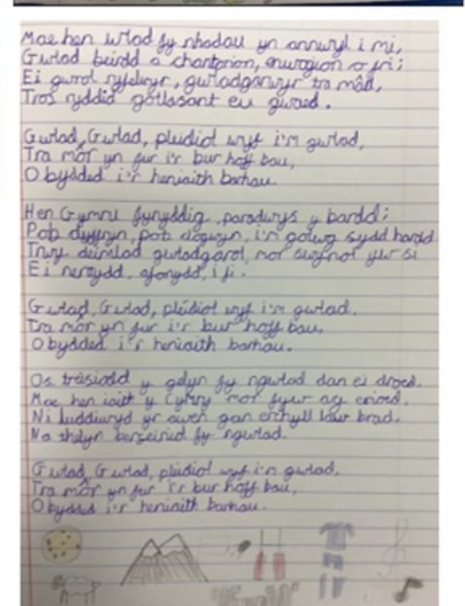 Mae hen wlad fy nhadau yn annwyl i mi,
Gwlad beirdd a chantorion, enwogion o fri;
Ei gwrol ryfelwyr, gwladgarwyr tra mâd,
Tros ryddid gollasant eu gwaed.
Gwlad, Gwlad, pleidiol wyf i'm gwlad,
Tra mor yn fur i'r bur hoff bau,
O bydded i'r heniaith barhau.
Hen Gymru fynyddig, paradwys y bardd;
Pob dyffryn, pob clogwyn, i'm golwg sydd hardd
Trwy deimlad gwladgarol, mor swynol yw si
Ei nentydd, afonydd, i fi.
Gwlad, Gwlad, pleidiol wyf i'm gwlad.
Tra môr yn fur i'r bur hoff bau,
O bydded i'r heniaith barhau.
Os treisiodd y gelyn fy ngwlad dan ei droed,
Mae hen iaith y Cymry mor fyw ag erioed.
Ni luddiwyd yr awen gan erchyll law brad,
Na thelyn berseiniol fy ngwlad.
Gwlad, Gwlad, pleidiol wyf i'm gwlad,
Tra môr yn fur i'r bur hoff bau,
O bydded i'r heniaith barhau.